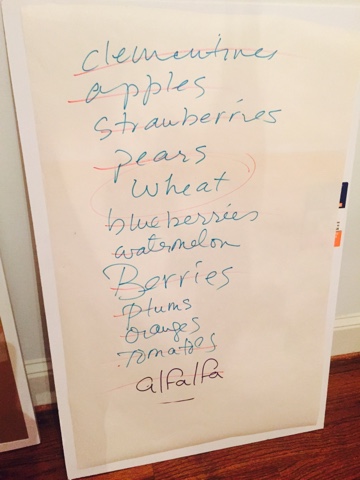 clementines
apples
strawberries
pears
wheat
blueberries
watermelon
Berries
plums
oranges
Tomatoes
alfalfa